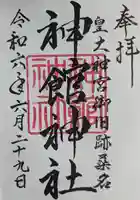 奉拝
皇大神宮御旧跡桑名
神館神社
令和六年六月二十九日